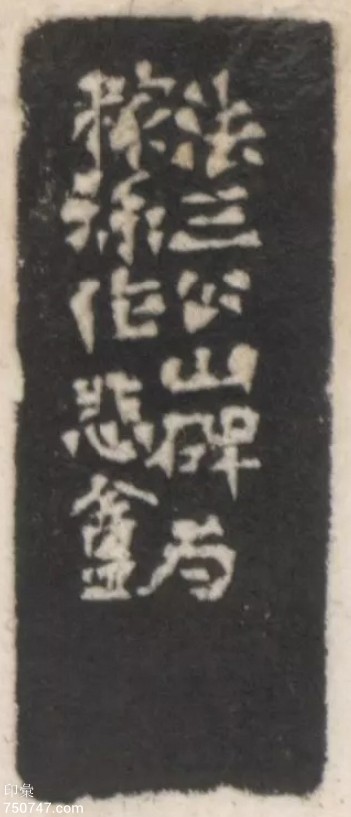 法三公山碑為
稼孫作悲盦
印彙
750747.com